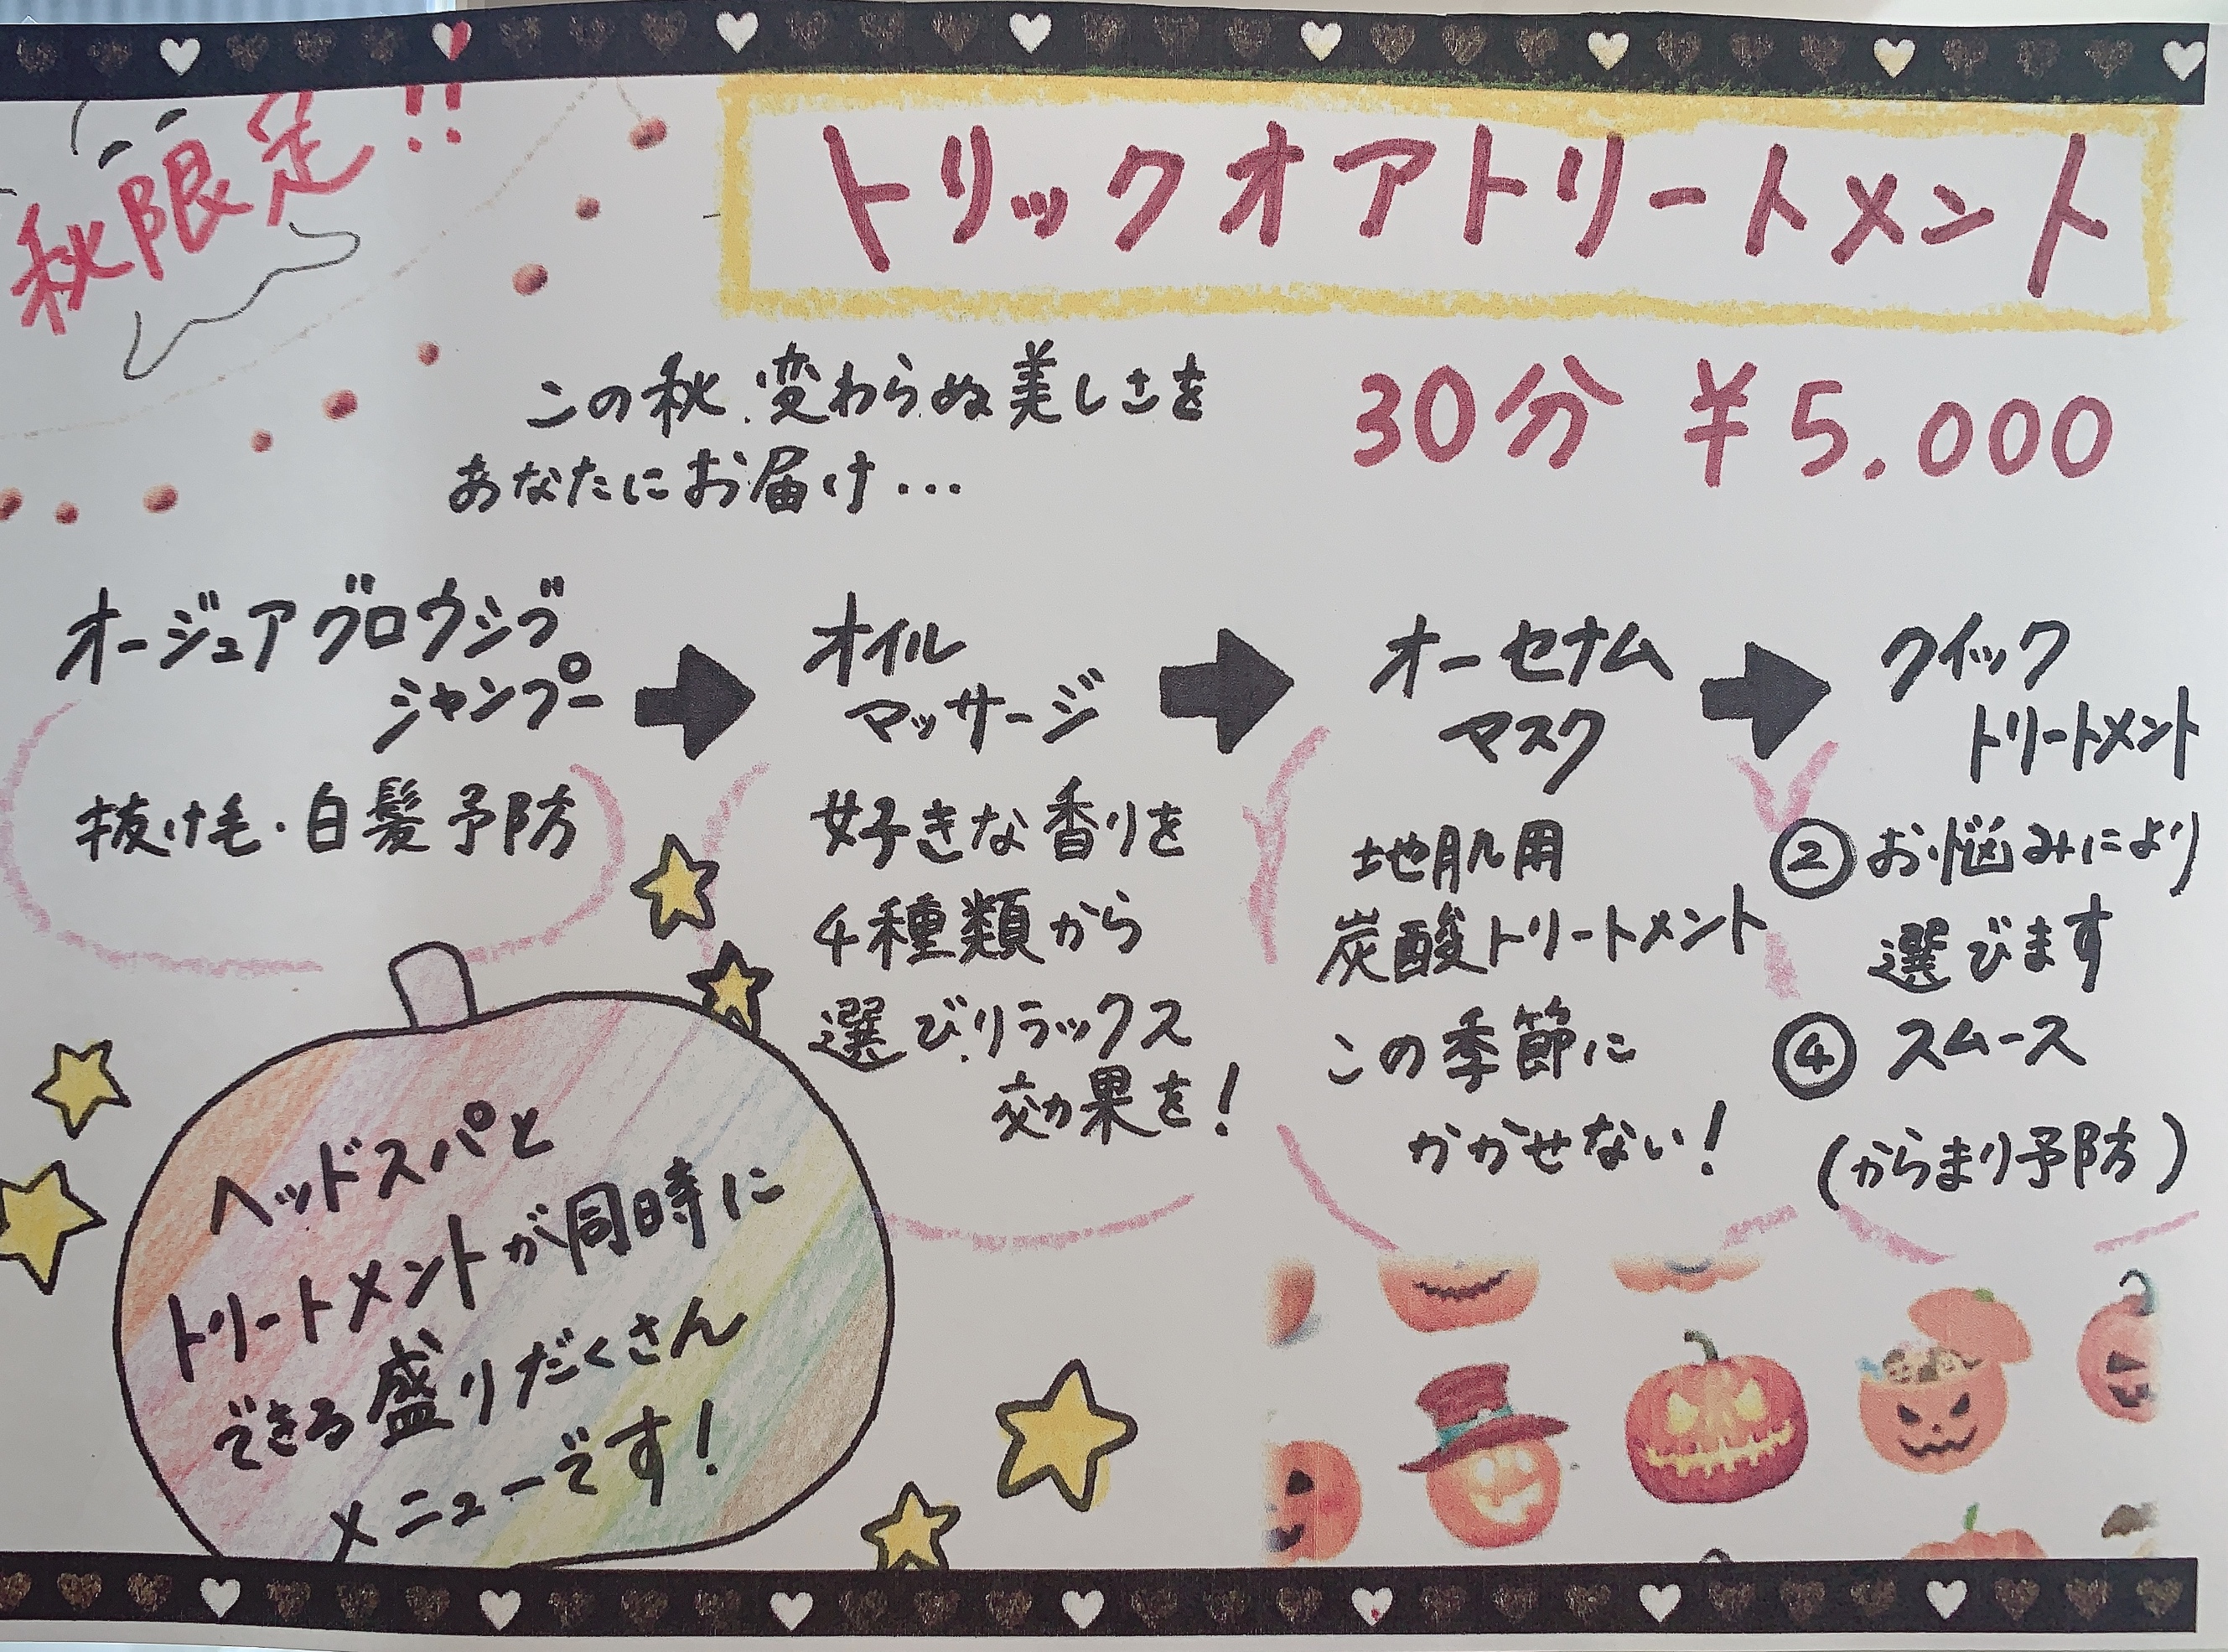 秋限定!!
トリックオアトリートメント
この秋、変わらぬ美しさを
あなたにお届け…
30分 ¥5.000
オージュアグロウシブ
シャンプー
抜け毛・白髪予防
オイル
マッサージ
好きな香りを
4種類から
選びリラックス
効果を!
オーセナム
マスク
地肌用
炭酸トリートメント
この季節に
かかせない!
クイック
トリートメント
②お悩みにより
選びます
④スムース
(からまり予防)
ヘッドスパと
トリートメントが同時に
できる盛りだくさん
メニューです!